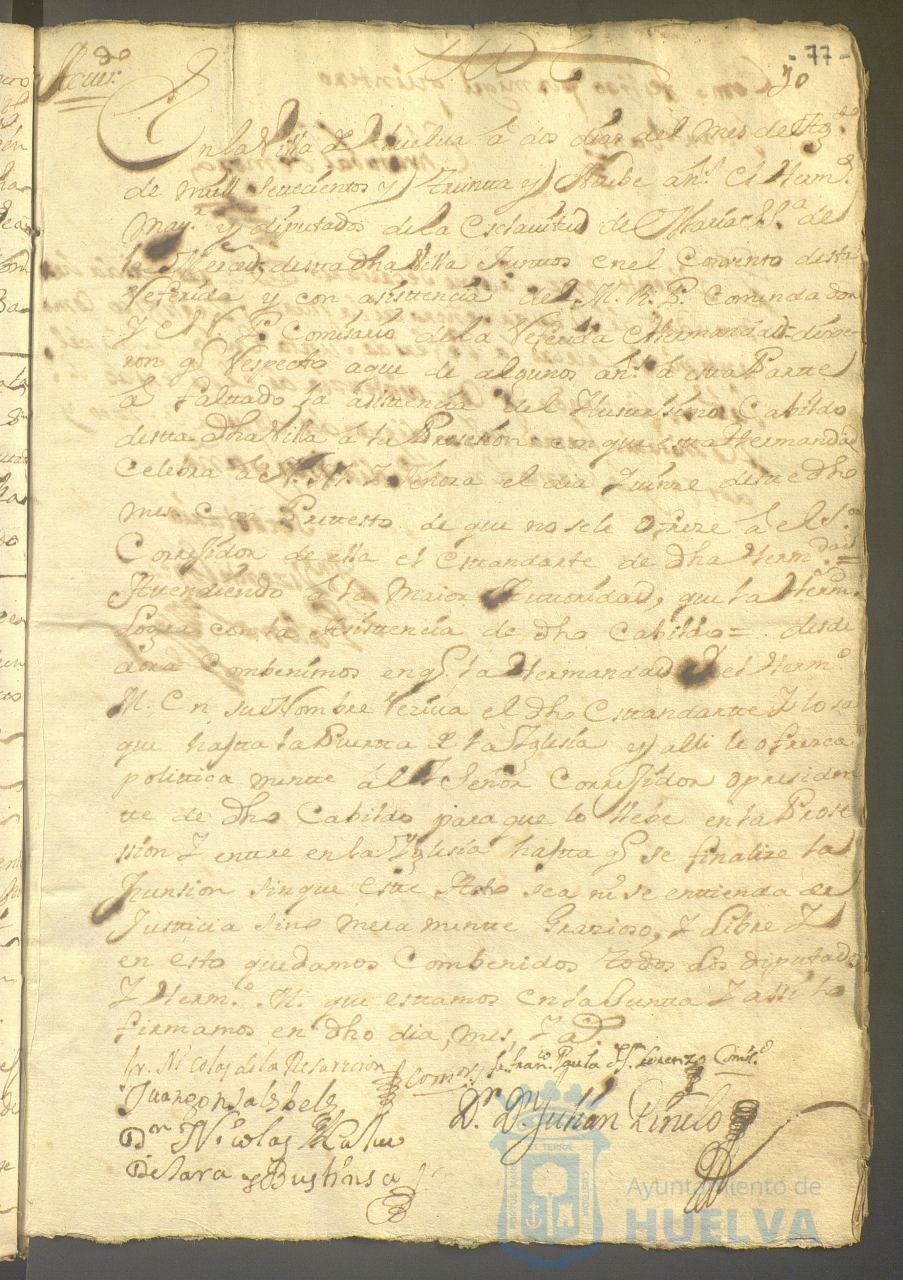 - 77 -
70
Acuerdo
En la Villa de Huelva â dos dias del mes de Ago.to
de mill setecientos y treinta y Nuebe an.s el Herm.o
May.r y diputados de la Esclavitud de Maria SS.a de
la Merced, desta dha Villa Juntos en el Convento desta
referida y con asistencia del M. R. P. Comendador
y N. P. Comisario de la referida Hermandad dixe
ron q respecto aque de algunos an.s â esta Parte
â faltado la asistencia del Ilustrisimo Cabildo
desta dha Villa â la Prosesion con que esta Hermandad
Celebra â N. M. y Señora el dia quinze deste dho
mes Con Pretesto de que no se le ofreze â el S.or
Corregidor de ella el Estandarte de dha Herm.dad =
Atendiendo â la Maior Autoridad, que la Herm.d
Logra con la Asistencia de dho Cabildo = desde
aora Combenimos en q. la Hermandad el Herm.o
M. en su Nombre reciva el dho Estandarte y lo sa
que hasta la Puerta de la Yglesia y alli le ofrezca
politica mente âl Señor Corregidor o presiden
te de dho Cabildo para que lo llebe en la Prose
ssion y entre en la Yglesia hasta q se finalize la
funsion sin que este Acto sea ni se entienda de
Justicia sino mera mente Grazioso, y Libre y
en esto quedamos Combenidos todos los diputados
y Herm.o M. que estamos en la Junta y assi lo
firmamos en dho dia, mes, y año
fr. Nicolas de la Resurecion Com.or
fr. Fran.co Paula de S. Lorenzo Comis.o
Juan Gonsales Beltr
Dr. Dn. Julian Pinelo
Dn Nicolas
De Lara y Bustinsa
Ayuntamiento de
HUELVA